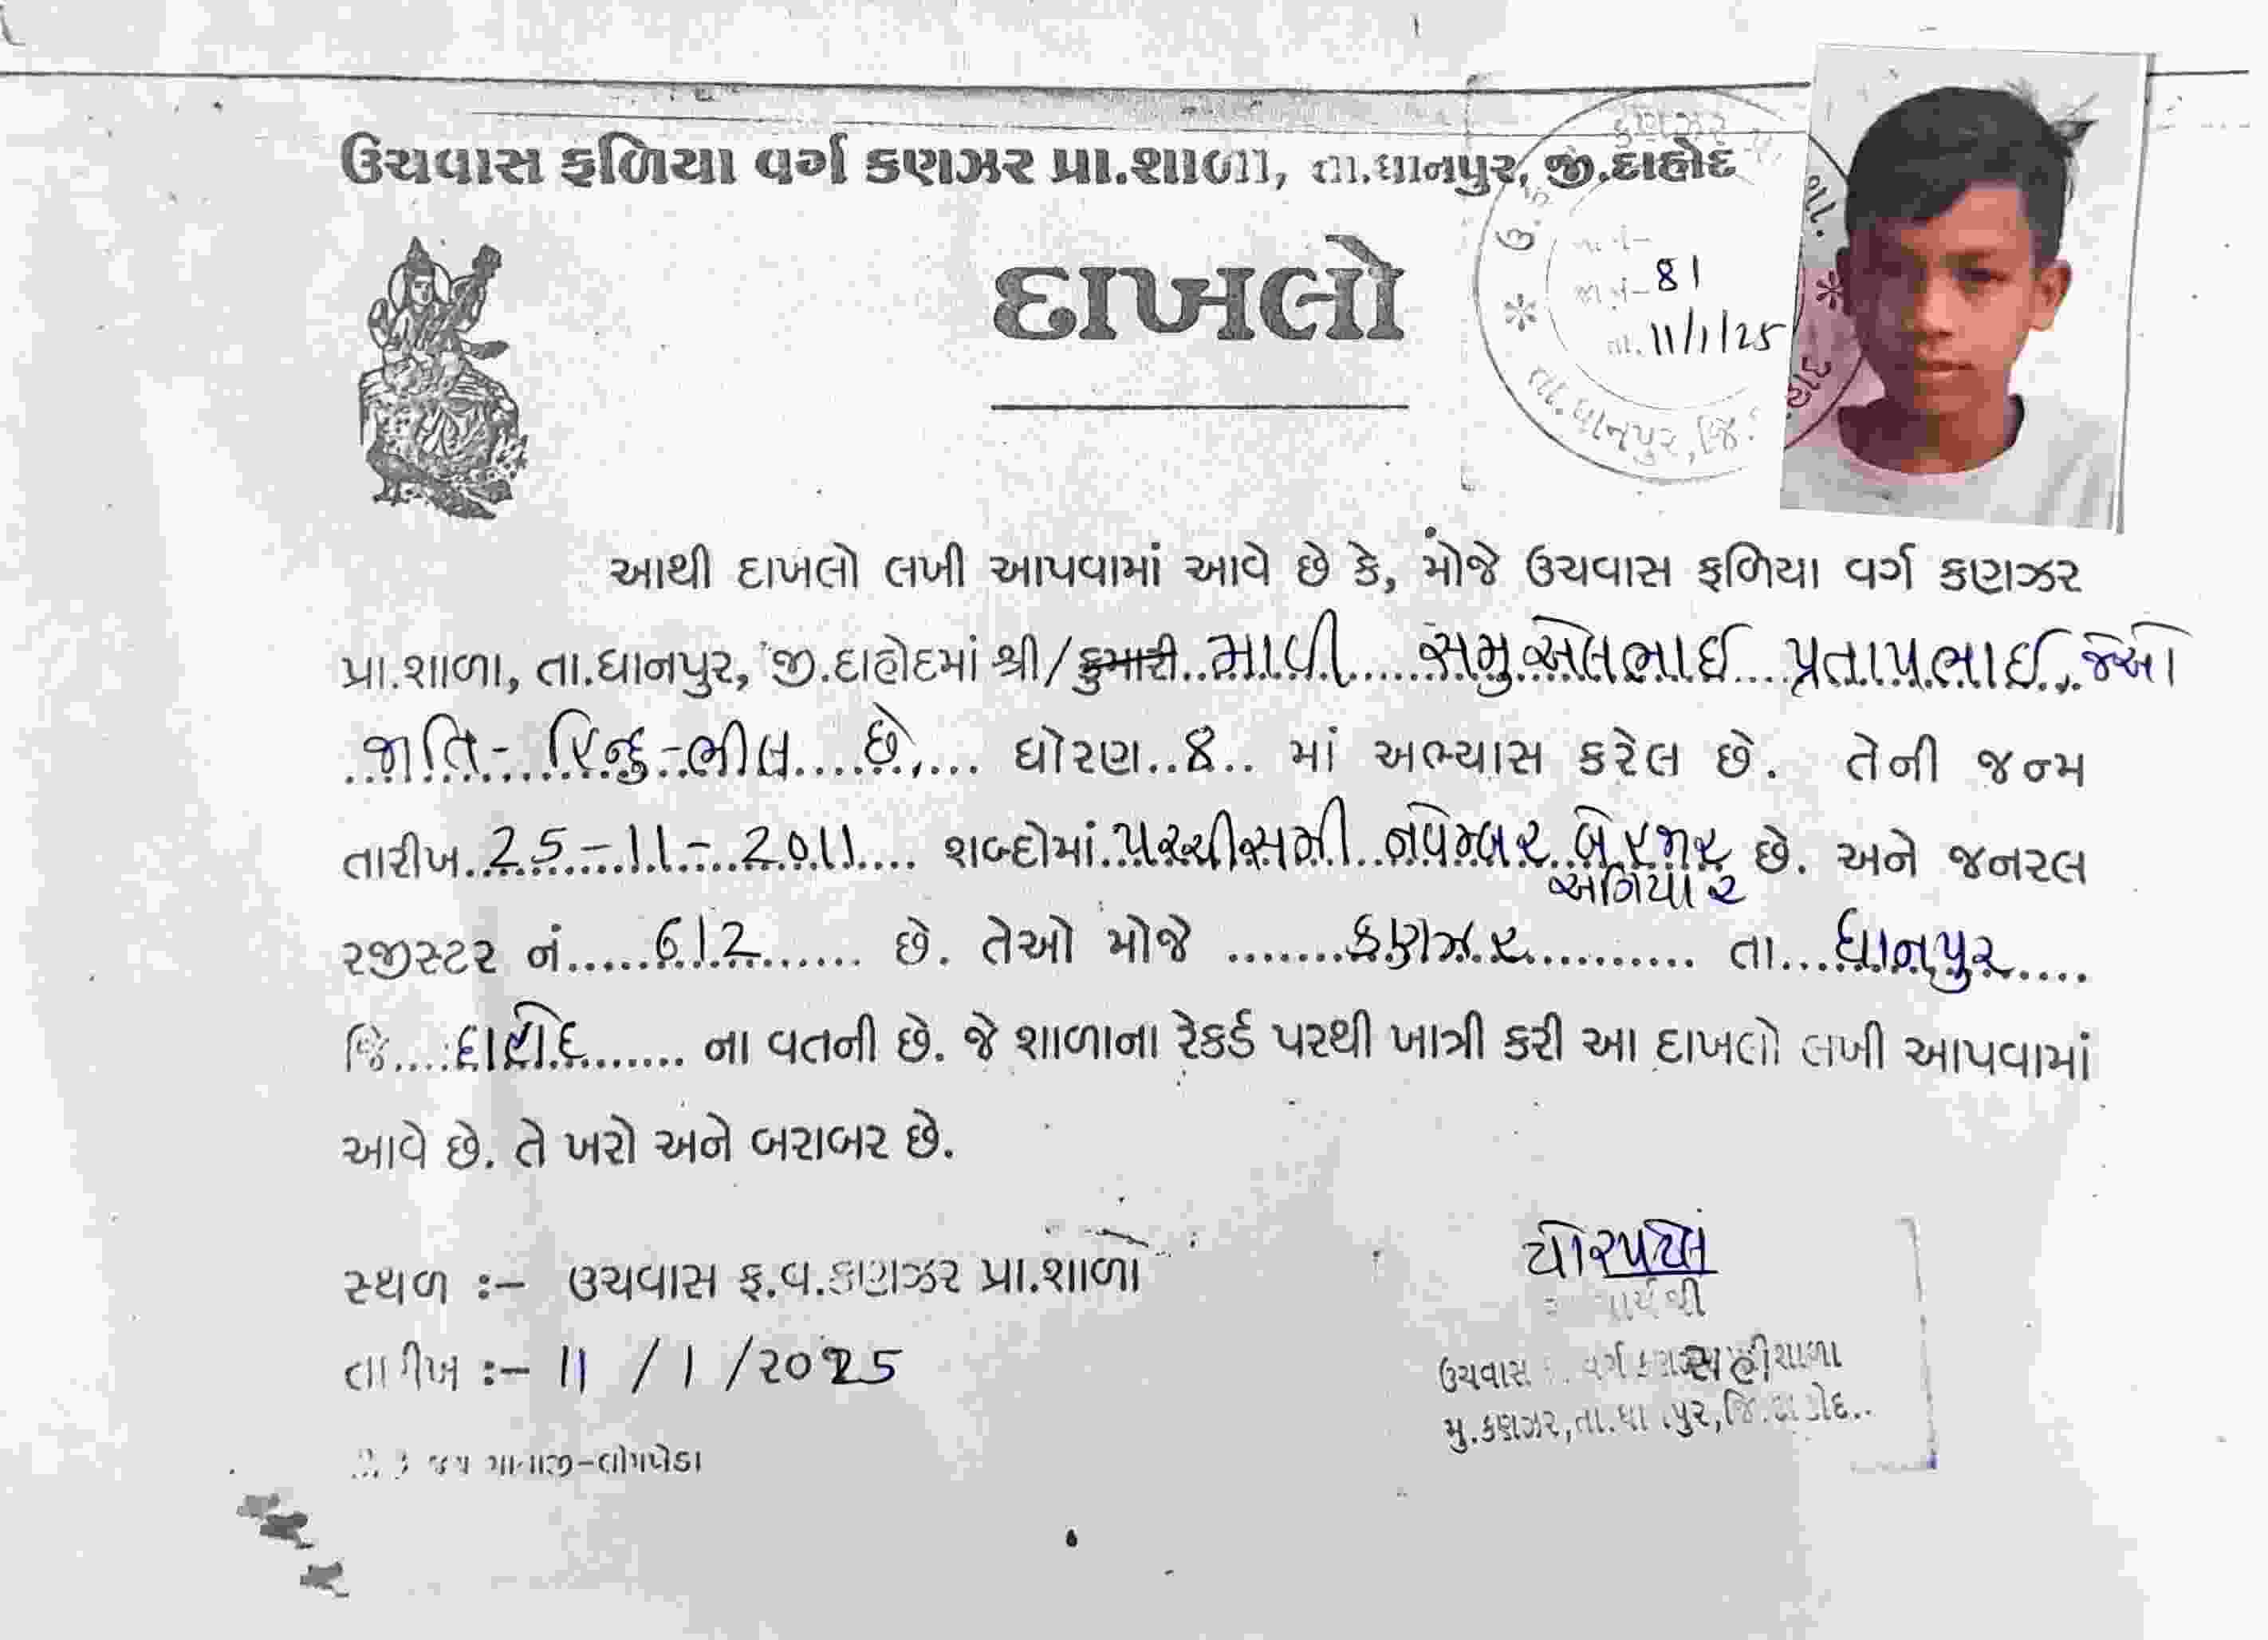 ઉચવાસ ફળિયા વર્ગ કણઝર પ્રા.શાળા, તા.ધાનપુર, જી.દાહોદ
દાખલો
81
તા. 11/1/25
તા.ધાનપુર, જિ.
આથી દાખલો લખી આપવામાં આવે છે કે, મોંજે ઉચવાસ ફળિયા વર્ગ કણઝર
પ્રા.શાળા, તા.ધાનપુર, જી.દાહોદમાં શ્રી/કુમારી..માવી.....સમુએલભાઈ....પ્રતાપભાઈ..જેઓ
જાતિ- હિન્દુ-ભીલ....છે,.... ધોરણ..8.. માં અભ્યાસ કરેલ છે. તેની જન્મ
તારીખ..25-11-2011.... શબ્દોમાં.પચ્ચીસમી નવેમ્બર બે હજાર છે. અને જનરલ
અગિયાર
રજીસ્ટર નં.....612....... છે. તેઓ મોજે .......કણઝર........... તા...ધાનપુર....
જિ....દાહોદ....... ના વતની છે. જે શાળાના રેકર્ડ પરથી ખાત્રી કરી આ દાખલો લખી આપવામાં
આવે છે. તે ખરો અને બરાબર છે.
સ્થળ :– ઉચવાસ ફ.વ.કણઝર પ્રા.શાળા
તારીખ :– 11 / 1 /૨૦25
ઉચવાસ વર્ગ સહી શાળા
મુ.કણઝર,તા.ધાનપુર,જિ.દાહોદ..